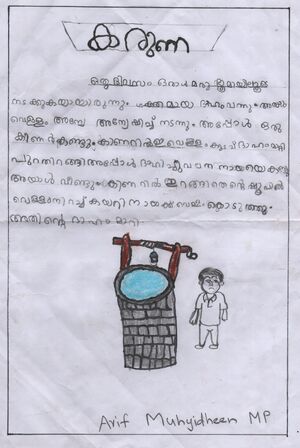 കരുണ
ഒരു ദിവസം ഒരാൾ മരുഭൂമയിലൂടെ
നടക്കുകയായരുന്നു. ശക്തമായ ദാഹം വന്നു. അയാൾ
വെള്ളം അന്വേഷിച്ച് നടന്നു. അപ്പോൾ ഒരു
കിണർ കണ്ടു. കിണറിൽ ഇറങ്ങി വെള്ളം കുടിച്ച് ദാഹം മാറ്റി
പുറത്തിറങ്ങി അപ്പോൾ ദാഹിച്ചു വന്ന നായയെ കണ്ടു
അയാൾ വീണ്ടും കിണറിൽ ഇറങ്ങി തന്റെ ഷൂവിൽ
വെള്ളം നിറച്ച് കയറി നായക്ക് വെള്ളം കൊടുത്തു.
അതിന്റെ ദാഹം മാറി.
Arif Muhyidheen MP